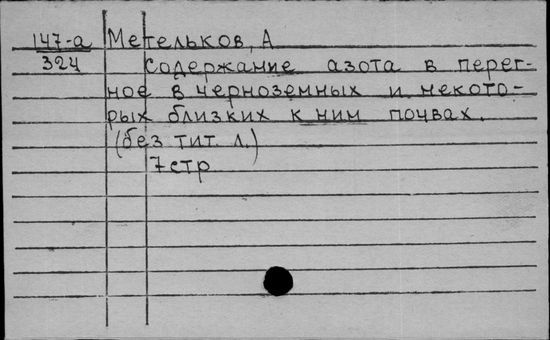 147-а Метельков, А
324 Содержание азота в перег-
ное в черноземных и некото-
рых близких к ним почвах.
(без тит. л.)
7 стр